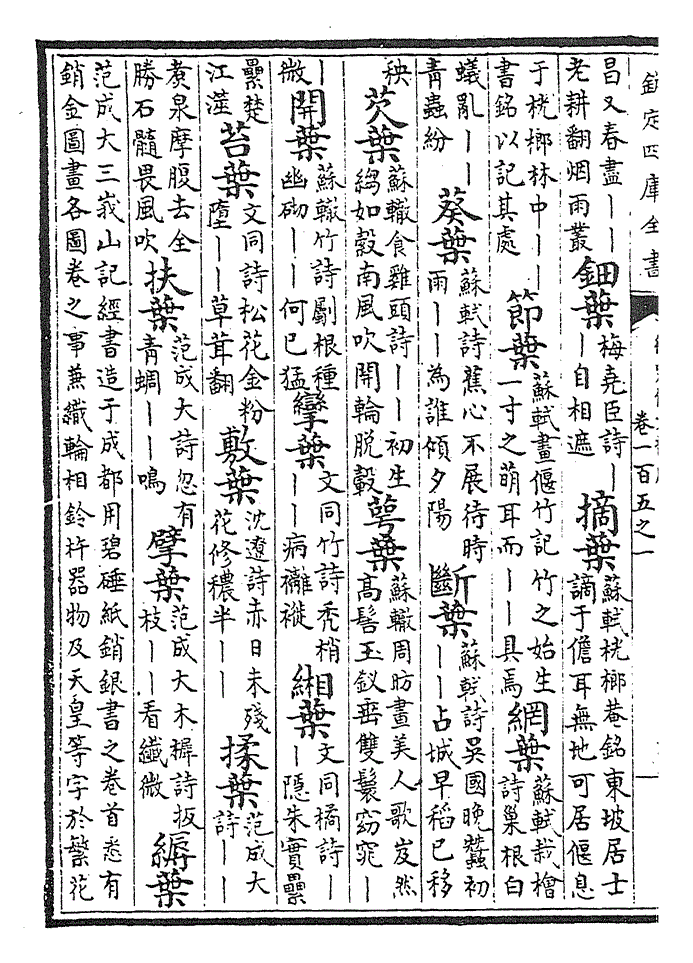 欽定四庫全書
卷一百五之一
昌又春盡丨丨
老耕翻烟雨叢
鈿葉
梅堯臣詩丨
丨自相遮
摘葉
蘇軾桄榔菴銘東坡居士
謫于儋耳無地可居偃息
于桄榔林中丨丨
書銘以記其處
節葉
蘇軾畫偃竹記竹之始生
一寸之萌耳而丨丨具焉
網葉
蘇軾栽檜
詩巢根白
蟻亂丨丨
青蟲紛
葵葉
蘇軾詩蕉心不展待時
雨丨丨為誰傾夕陽
斷葉
蘇軾詩吳國晚蠶初
丨丨占城早稻已移
秧
芡葉
蘇轍食雞頭詩丨丨初生
縐如縠南風吹開輪脫轂
萼葉
蘇轍周昉畫美人歌岌然
高髻玉釵垂雙鬟窈窕丨
丨
微
開葉
蘇轍竹詩劚根種
幽砌丨丨何已猛
孿葉
文同竹詩禿梢
丨丨病襹褷
緗葉
文同橘詩丨
丨隱朱實纍
纍楚
江滋
苔葉
文同詩松花金粉
墮丨丨草茸翻
敷葉
沈遼詩赤日未殘
花修穠半丨丨
揉葉
范成大
詩丨丨
黄泉摩腹去全
勝石髓畏風吹
扶葉
范成大詩忽有
青蜩丨丨鳴
擘葉
范成大木樨詩扳
枝丨丨看纖微
縟葉
范成大三峩山記經書造于成都用碧硾紙銷銀書之卷首悉有
銷金圖畫各圖卷之事蕪織輪相鈴杵器物及天皇等字於縈花